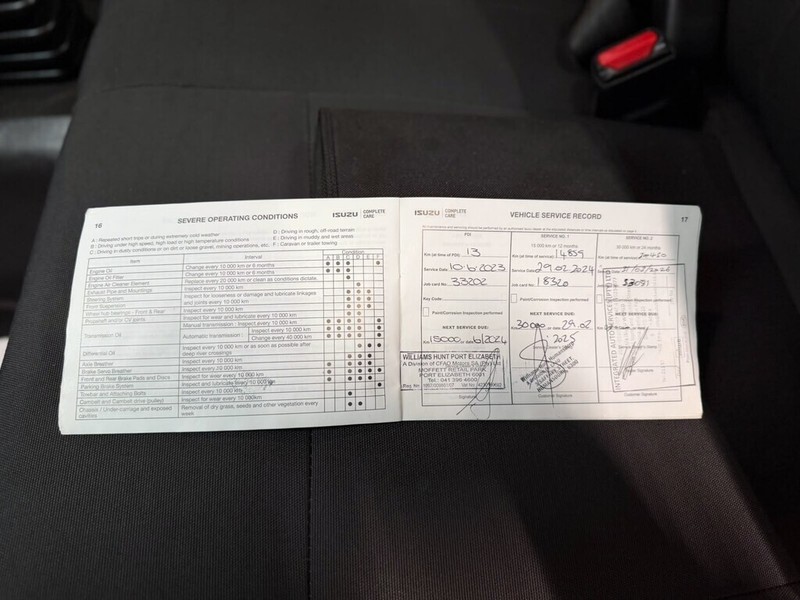 16
SEVERE OPERATING CONDITIONS
ISUZU COMPLETE CARE
A : Repeated short trips or during extremely cold weather
B : Driving under high speed, high load or high temperature conditions
C : Driving in dusty conditions or on dirt or loose gravel, mining operations, etc.
D : Driving in rough, off-road terrain
E : Driving in muddy and wet areas
F : Caravan or trailer towing
Item Interval Condition
A B C D E F
Engine Oil Change every 10 000 km or 6 months
Engine Oil Filter Change every 10 000 km or 6 months
Engine Air Cleaner Element Replace every 20 000 km or clean as conditions dictate.
Exhaust Pipe and Mountings Inspect every 10 000 km
Steering System Inspect for looseness or damage and lubricate linkages and joints every 10 000 km
Front Suspension
Wheel hub bearings - Front & Rear Inspect every 10 000 km
Propshaft and/or OJ joints Inspect for wear and lubricate every 10 000 km
Transmission Oil Manual transmission : Inspect every 10 000 km
Automatic transmission : Inspect every 10 000 km
Change every 40 000 km
Differential Oil Inspect every 10 000 km or as soon as possible after deep river crossings
Axle Breather Inspect every 10 000 km
Brake Servo Breather Inspect every 20 000 km
Front and Rear Brake Pads and Discs Inspect for wear every 10 000 km
Parking Brake System Inspect and lubricate every 10 000 km
Towbar and Attaching Bolts Inspect every 10 000 km
Cambelt and Cambelt drive (pulley) Inspect for wear every 10 000km
Chassis / Under-carriage and exposed cavities Removal of dry grass, seeds and other vegetation every week
ISUZU COMPLETE CARE
VEHICLE SERVICE RECORD
17
PDI
Km (at time of PDI): 13
Service Date 10-6-2023
Job card No. 33202
Key Code
Paint/Corrosion Inspection performed
NEXT SERVICE DUE:
Km 15000 or date 6/2024
WILLIAMS HUNT PORT ELIZABETH
A Division of CFAO Motors SA (Pty) Ltd
MOFFETT RETAIL PARK
PORT ELIZABETH 6001
Tel.: 041 398 4600
Signature
SERVICE NO. 1
15 000 km or 12 months
Km (at time of service) 14859
Service Date 29.02.2024
Job card No. 18320
Paint/Corrosion Inspection performed
NEXT SERVICE DUE:
30000 29.02
2025
Customer Signature
SERVICE NO. 2
30 000 km or 24 months
Km (at time of service)
Paint/Corrosion Inspection performed
NEXT SERVICE DUE:
Customer Signature